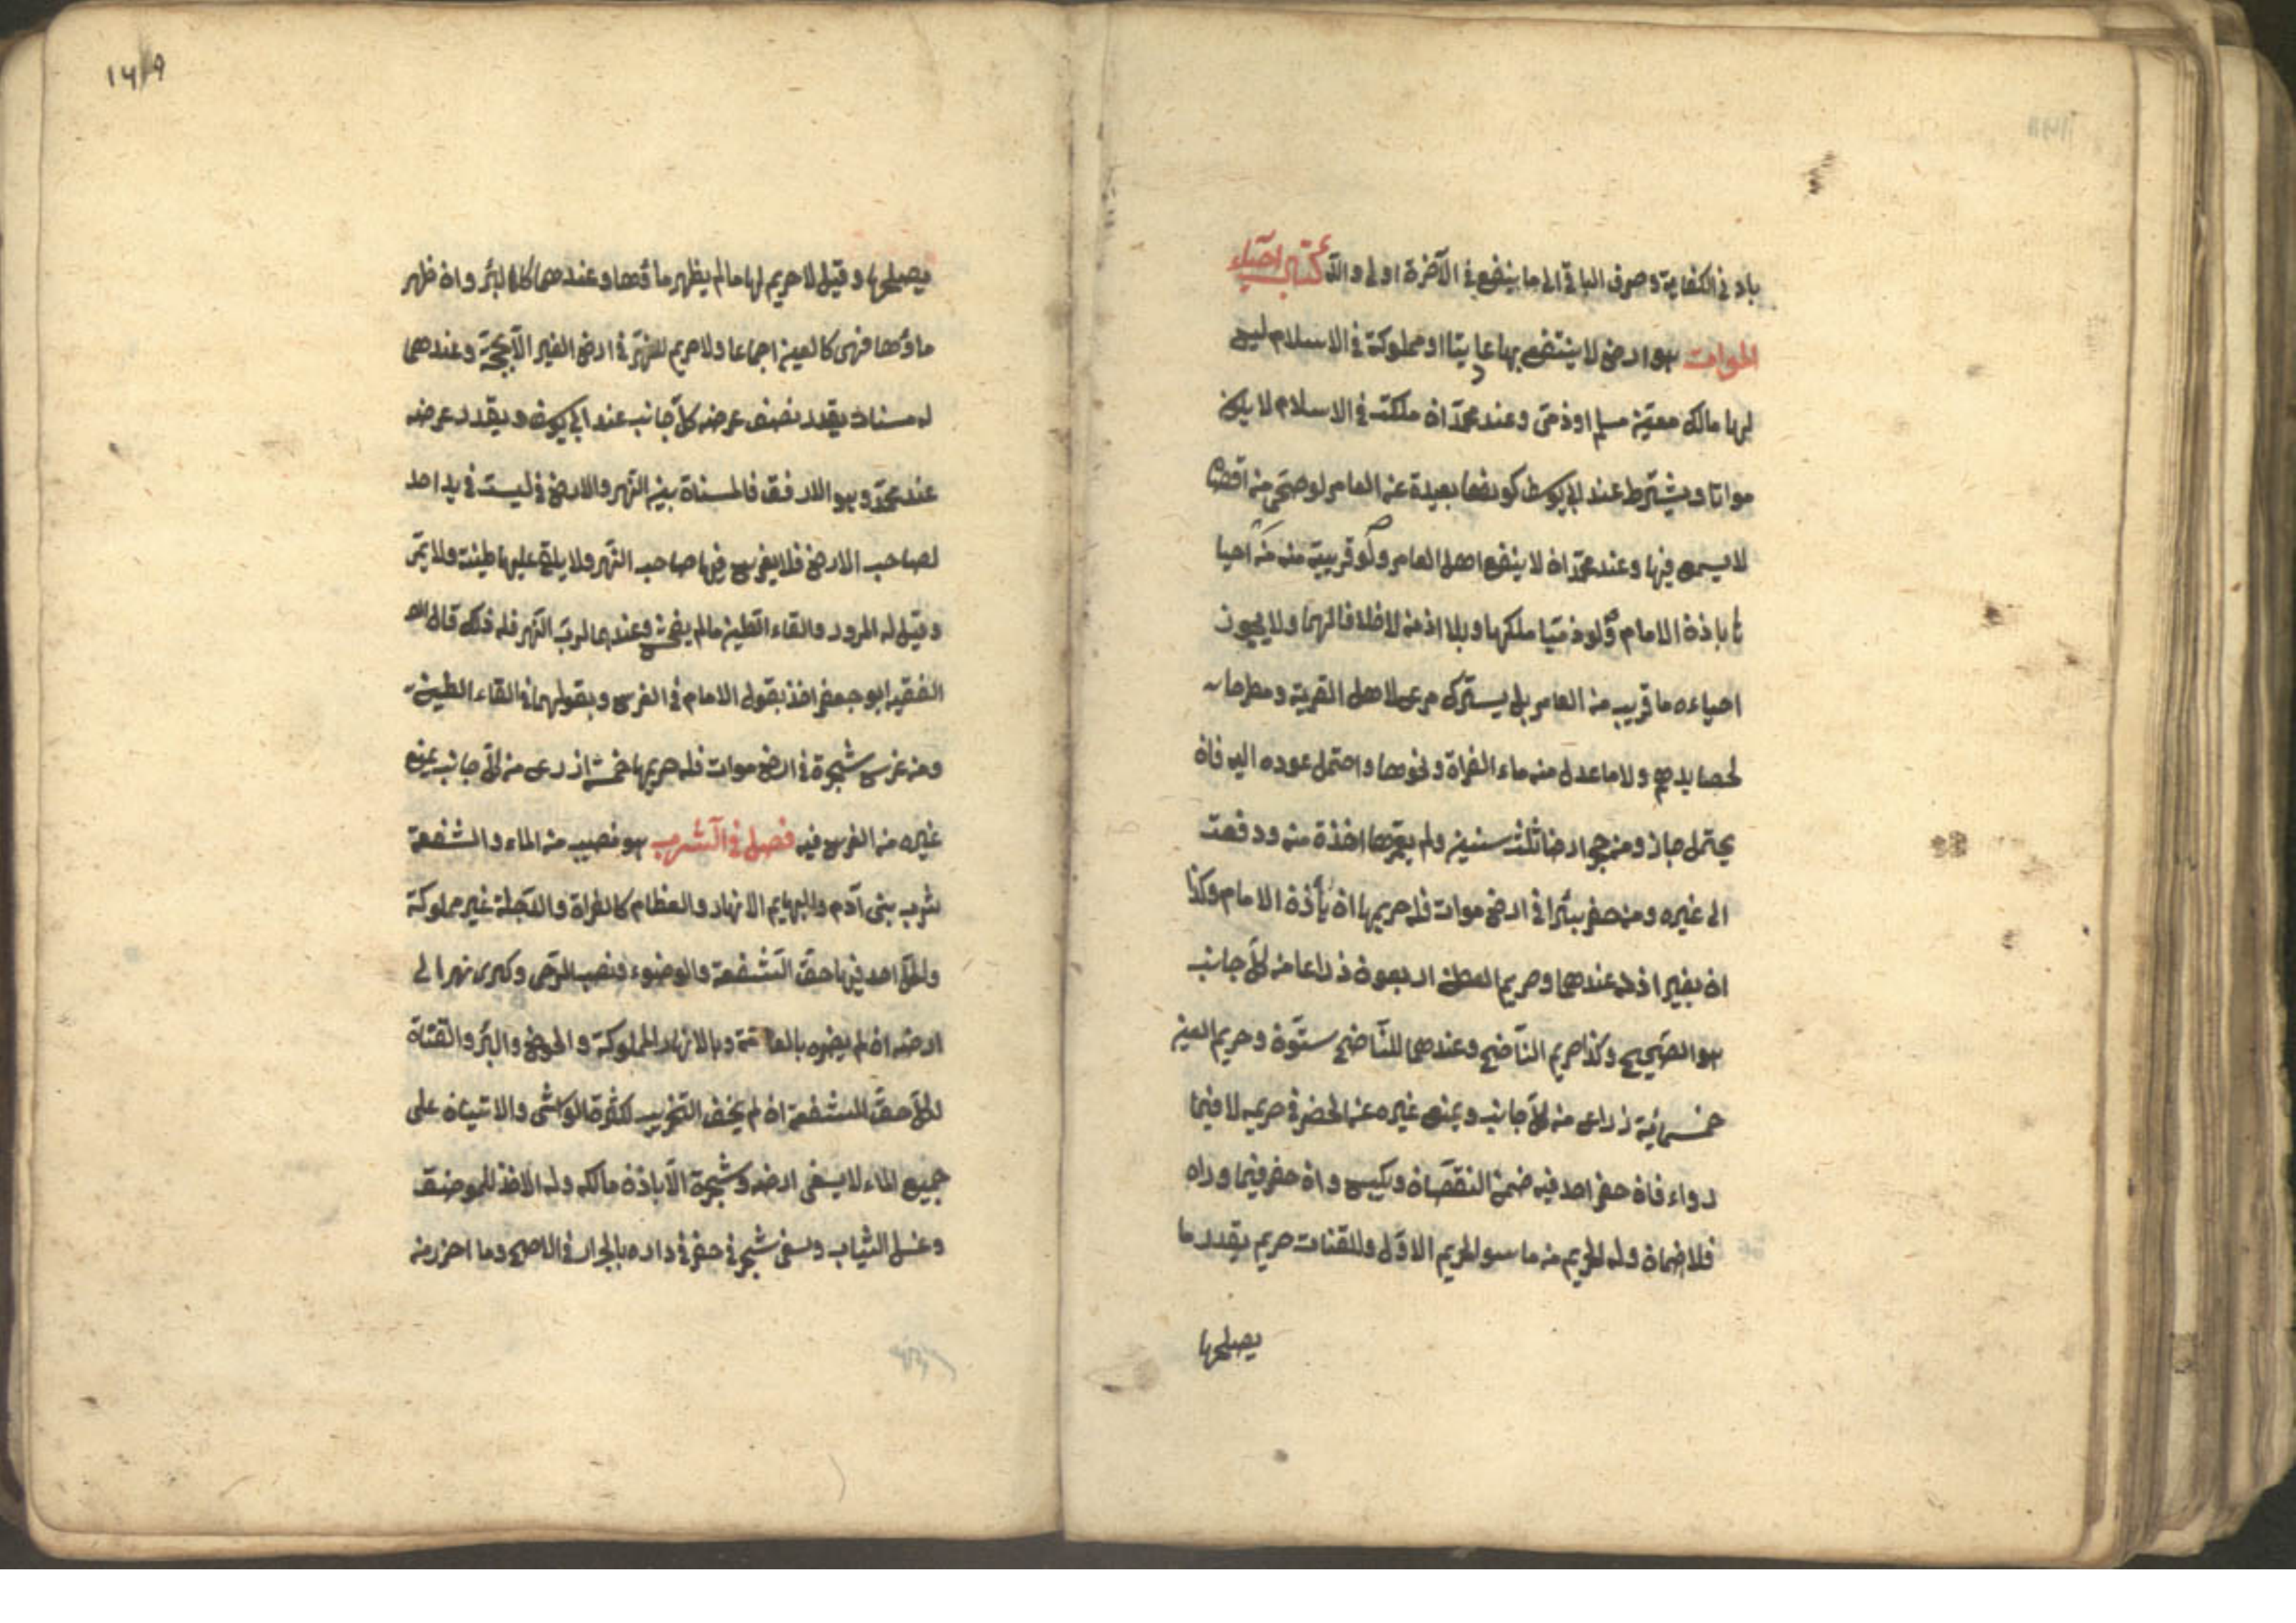 بادنى الكفاية وصرف الباقى الى ما ينفع فى الآخرة اولى والله كتاب احياء
الموات هو ارض لا ينتفع بها عاديتا او مملوكة فى الاسلام ليس
لها مالك معين مسلم او ذمى وعند محمد ان ملكت فى الاسلام لا يكون
مواتا ويشترط عند ابى يوسف كونها بعيدة عن العامر لو صحى من اقصاه
لا يسمع فيها وعند محمد ان لا ينفع اهل العامر ولو قريبة منه من احيا
باذن الامام ولو ذميا ملكها وبلا اذنه لا خلافا لهما ولا يجوز
احياء ما قريب من العامر بل يترك مرعى لاهل القرية ومطرحا
لحصايدهم ولا ما عدل منه ماء الفراة ونحوها واحتمل عوده اليه فان
يحتمل جاز ومن حجر ارضا ثلث سنين ولم يعمرها اخذة منه ودفعت
الى غيره ومن حفر بئرا فى ارض موات فله حريمها ان بأذن الامام وكذا
ان بغير اذنه عندهما وحريم العطن اربعون ذراعا من كل جانب
هو الصحيح وكذا حريم الناضح وعندهما للناضح ستون وحريم العين
خمسمائة ذراع من كل جانب ويمنع غيره عن الحفر فى حريمه لا فيما
وراء فان حفر احد فيه ضمن النقصان ويكبس وان حفر فيما وراه
فلا ضمان وله الحريم من ما سوا لحريم الاول وللقنات حريم بقدر ما
يصلحها
يصلحها وقيل لا حريم لها مالم يظهر ماؤها وعندهما كالبئر وان ظهر
ماؤها فهى كالعين اجماعا ولا حريم للنهر فى ارض الغير الا بحجة وعندهما
له مسنات بقدر نصف عرضه كل جانب عند ابى يوسف وبقدر عرضه
عند محمد وهو الارفق فالمسناة بين النهر والارض ليست فى يد احد
لصاحب الارض فلا يغرس فيها صاحب النهر ولا يلقى عليها طينه ولا يمر
وقيل له المرور والقاء الطين مالم يفحش وعندهما لرب النهر فله ذلك قال
الفقيه ابو جعفر اخذ بقول الامام فى الغرس وبقولهما فى القاء الطين
ومن غرس شجرة فى ارض موات فله حريمها خمسة اذرع من كل جانب يمنع
غيره من الغرس فيه فصل فى الشرب هو نصيب من الماء والشفعة
شرب بنى آدم والبهايم الانهار والعظام كالفراة والدجلة غير مملوكة
ولكل احد فيها حق الشفعة والوضوء ونصب الرحى وكرى نهر الى
ارضه ان لم يضره بالعامة وبالانهار المملوكة والحوض والبئر والقناة
لكل حق الشفعة ان لم يخف التخريب لكثرة المواشى والاتيان على
جميع الماء لا يسقى ارضه وشجرة الا باذن مالكه وله الاخذ للموضئ
وغسل الثياب وسقى شجر فى حفر فى داره بالجرار فى الاصح وما احرز منه
١٦٩